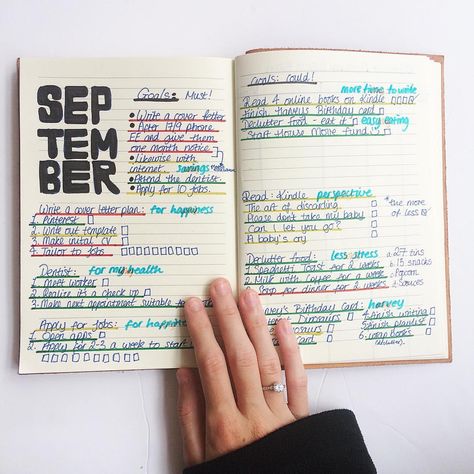 SEP
TEM
BER
Goals: Must!
• Write a cover letter
• After 17/9 phone
EE and give them
one month notice
• Likewise with
internet. savings
• Attend the dentist.
• Apply for 10 jobs.
Write a cover letter plan: for happiness
1. Pinterest
2. Write out template
3. Make initial CV
4. Tailor to jobs
Dentist: for my health
1. Meet worker
2. Realise it's a check up
3. Make next appointment suitable
Apply for Jobs: for happin
1. Open apps
2. Apply for 2-3 a week to start
Goals: Could!
more time to write
Read 4 online books on Kindle
Finish Harvey's Birthday card
Declutter food - eat it easy eating
Start House Move fund
Read: Kindle perspective
The art of discarding
Please don't take my baby
Can I let you go?
A baby's cry
*the more
of less
Declutter food: less stress
1. Spaghetti Toast for 2 weeks
2. Milk with Coffee for a week
Soup for dinner for 2 weeks
a. 27 tins
b. 15 snacks
Popcorn
Sauces
's Birthday Card: harvey
Dinosaurs
saurs
Card
4. Finish writing
5. Finish playlist
6. Books